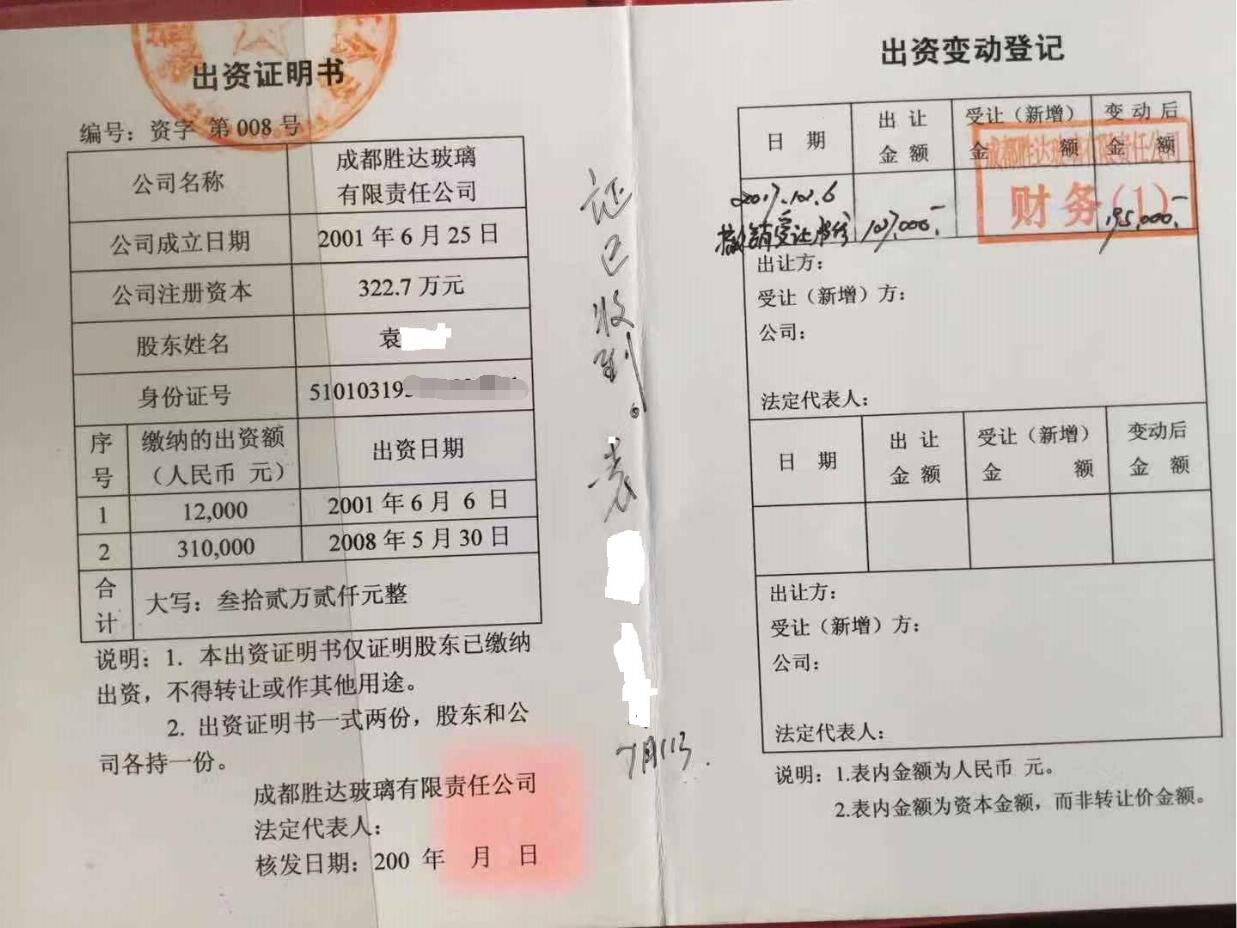 出资证明书
编号：资字 第 008 号
公司名称
成都胜达玻璃
有限责任公司
公司成立日期
2001 年 6 月 25 日
公司注册资本
322.7 万元
股东姓名
袁
身份证号
51010319
序号
缴纳的出资额
（人民币 元）
出资日期
1
12,000
2001 年 6 月 6 日
2
310,000
2008 年 5 月 30 日
合计
大写：叁拾贰万贰仟元整
说明：1. 本出资证明书仅证明股东已缴纳
出资，不得转让或作其他用途。
2. 出资证明书一式两份，股东和公
司各持一份。
成都胜达玻璃有限责任公司
法定代表人：
核发日期：200 年 月 日
证已收到。袁
7月11日.
出资变动登记
日 期
出 让
金 额
受让（新增）
金 额
变 动 后
金 额
成都胜达玻璃有限责任公司
财务(1)
2017.12.6
撤销受让股份
127,000.-
195,000.-
出让方：
受让（新增）方：
公司：
法定代表人：
日 期
出 让
金 额
受让（新增）
金 额
变动后
金 额
出让方：
受让（新增）方：
公司：
法定代表人：
说明：1.表内金额为人民币 元。
2.表内金额为资本金额，而非转让价金额。